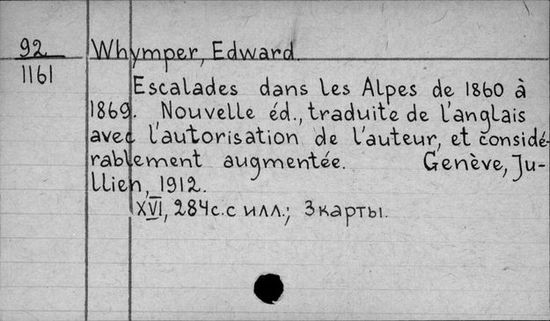 92
1161
Whymper, Edward.
Escalades dans les Alpes de 1860 à
1869. Nouvelle éd., traduite de l'anglais
avec l'autorisation de l'auteur, et considé-
rablement augmentée. Genève, Ju-
llien, 1912.
XVI, 284c. с илл.; 3 карты.